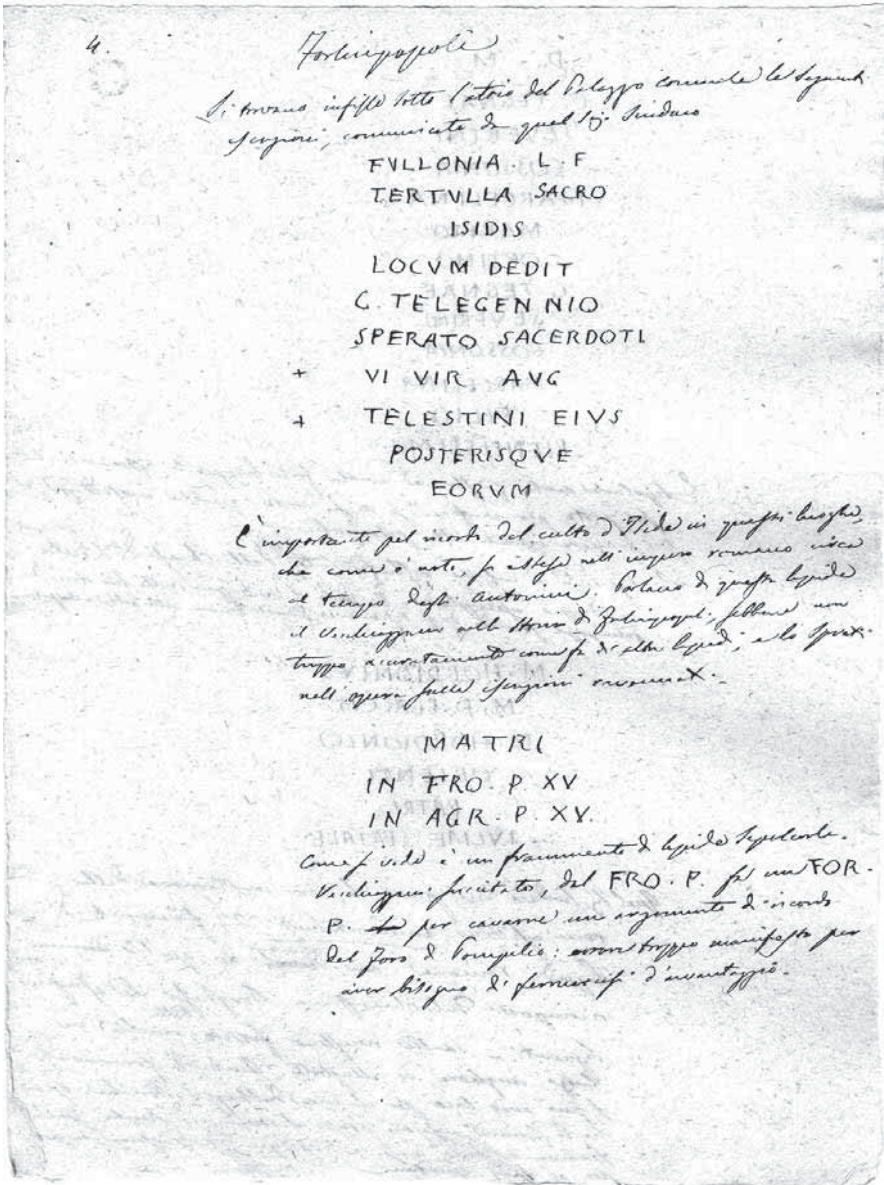 4.
Forlimpopoli
Si trovano infisse sotto l'atrio del Palazzo comunale le seguenti
iscrizioni, comunicate da quel Sig. Sindaco
FVLLONIA. L. F
TERTVLLA SACRO
ISIDIS
LOCVM DEDIT
C. TELEGENNIO
SPERATO SACERDOTI
+ VI VIR AVG
+ TELESTINI EIVS
POSTERISQVE
EORVM
È importante pel ricordo del culto d'Iside in questi luoghi,
che come è noto, fu esteso nell'impero romano circa
al tempo degli Antonini. Parlano di questa lapide
il Vecchiazzani nella Storia di Forlimpopoli, sebbene non
troppo accuratamente come fa di altre lapidi; e lo Spreti
nell'opera sulle iscrizioni
MATRI
IN FRO. P. XV
IN AGR. P. XV.
Come si vede è un frammento di lapide sepolcrale.
Vecchiazzani succitato, del FRO. P. fa un FOR.
P. per cavarne un argomento di ricordo
del Foro di Pompilio: errore troppo manifesto per
aver bisogno di fermarcisi d'avantaggio.